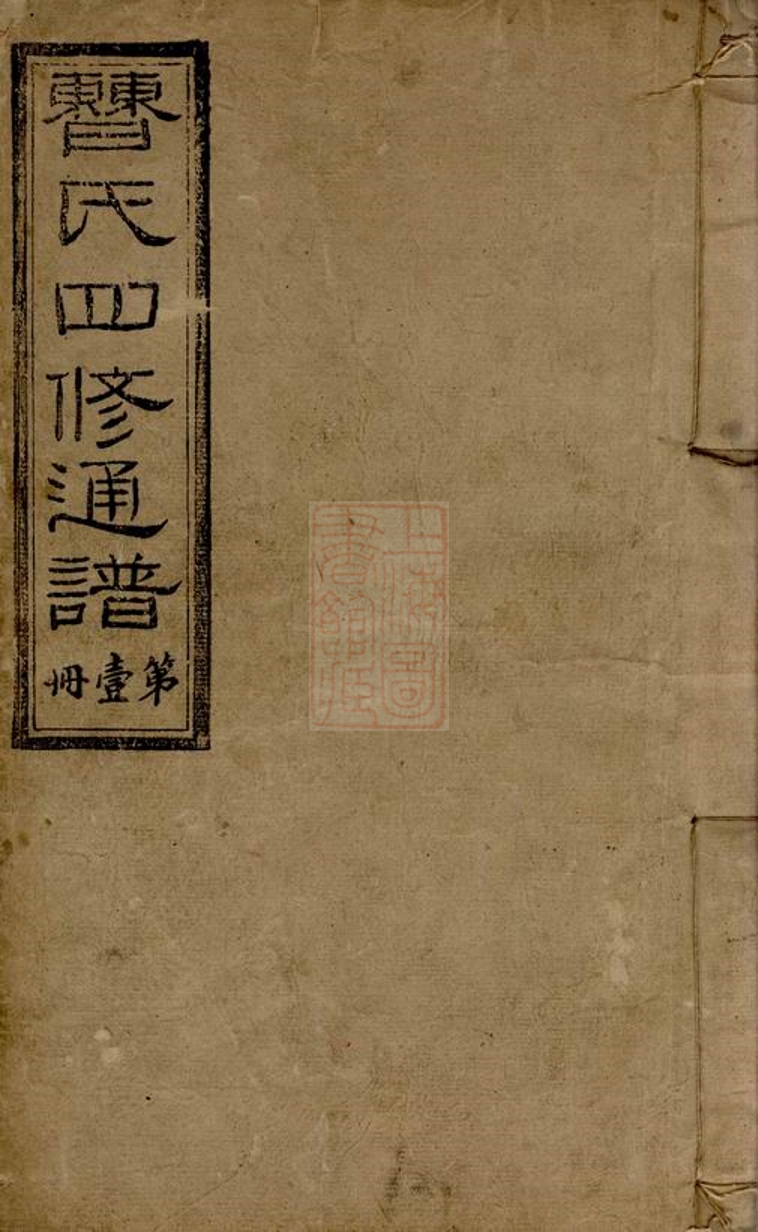 曹氏四修通譜
第壹冊
上海圖書館藏